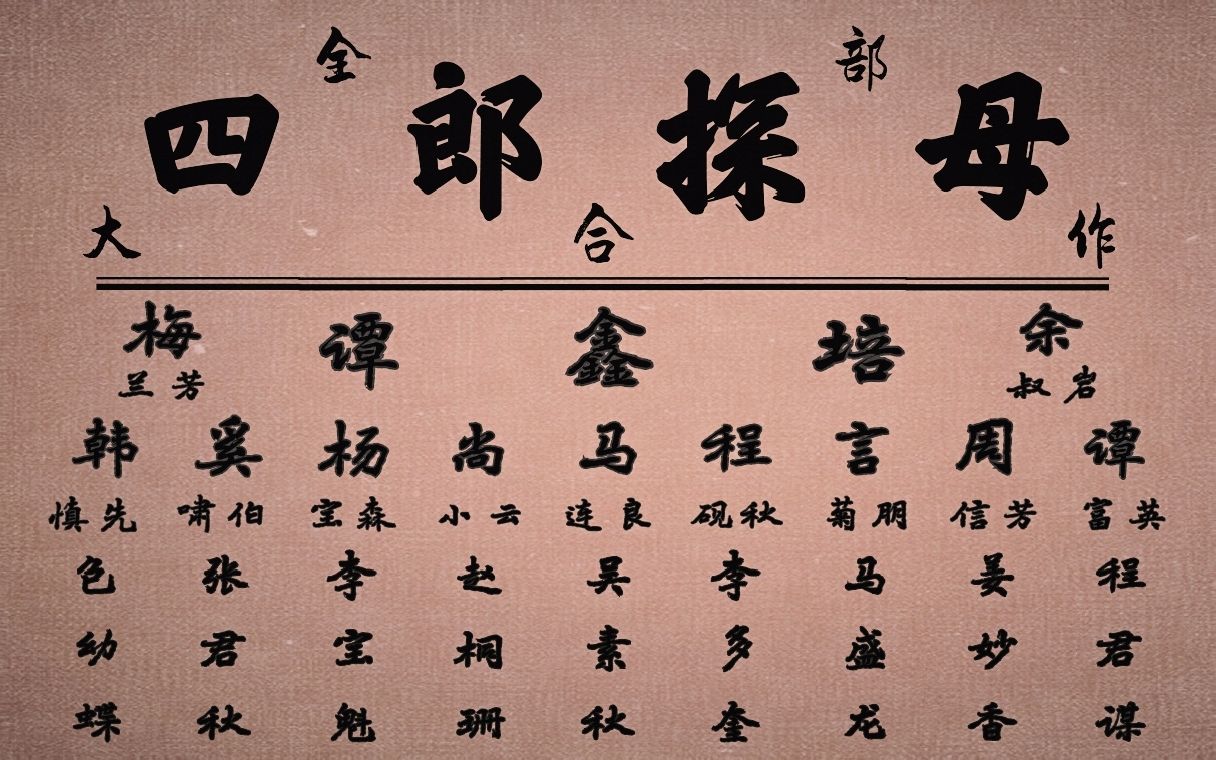 全 部
四 郎 探 母
大 合 作
梅 谭 鑫 培 余
兰 芳 叔 岩
韩 奚 杨 尚 马 程 言 周 谭
慎 先 啸 伯 宝 森 小 云 连 良 砚 秋 菊 朋 信 芳 富 英
色 张 李 赵 吴 李 马 姜 程
幼 君 宝 桐 素 多 盛 妙 君
蝶 秋 魁 珊 秋 奎 龙 香 谋